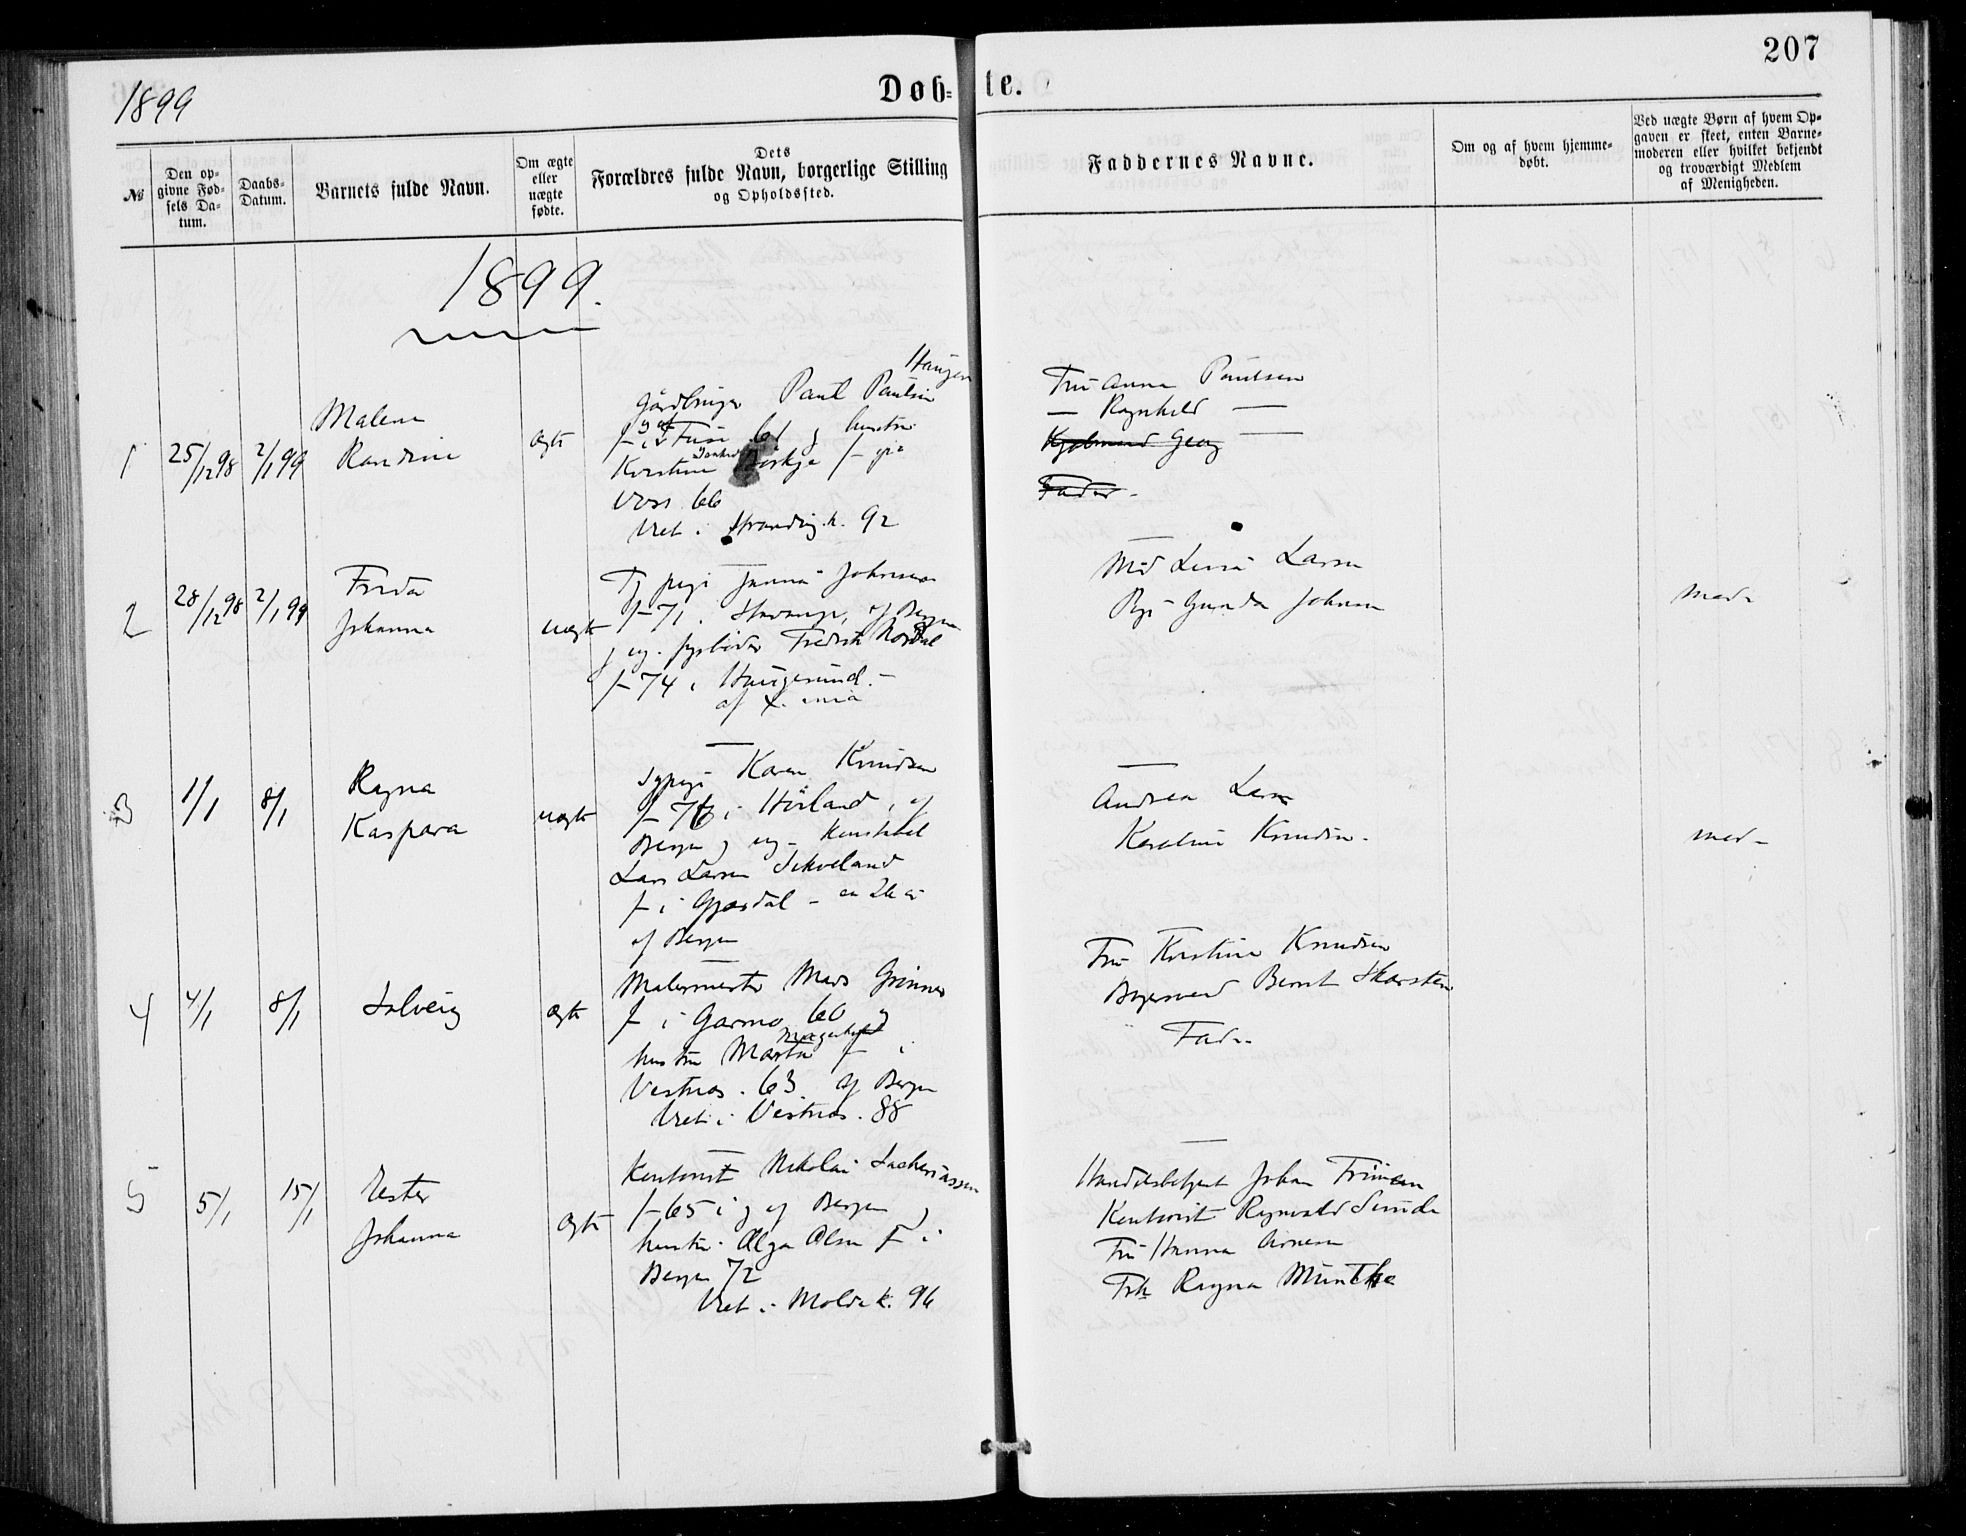 207
1899
Døb=te.
№
Den op=
givne Fød=
sels Da=
tum.
Daabs=
Datum.
Barnets fulde Navn.
Om ægte
eller
uægte
fødte.
Dets
Forældres fulde Navn, borgerlige Stilling
og Opholdssted.
Faddernes Navne.
Om og af hvem hjemme=
døbt.
Ved uægte Børn af hvem Op=
gaven er skeet, enten Barne=
moderen eller hvilket bekjendt
og troværdigt Medlem
af Menigheden.
1899.
1
25/12 98
2/1 99
Malene
Randine
ægte
Haugen
Paul Paulsen
f- i Fuse 61 g hustru
Kristine
Voss 66
Viet i 92
Fru Anna Paulsen
— Ragnhild —
Georg —
Fader -
2
28/12 98
2/1 99
Frida
Johanna
uægte
Tj pige Johnsen
f- 71 i Stavanger, af Bergen
g ug. fyrbøder Fredrik Nordal
f- 74 i Haugesund. -
Larsen
Pige Gunda Johnsen
mod-
3
1/1
8/1
Ragna
Kaspara
uægte
Sypige Karen Knudsen
f- 76 i Hörland, af
Bergen g ug- konstabel
Lars Larsen Sikveland
f- i Gjesdal -
af Bergen
Andrea Larsen
Karoline Knudsen -
mod-
4
4/1
8/1
Solveig
ægte
Malermester Mads Grönnes
f i Garmo 60 g
hustru Marta f i
Vestnes. 63 af Bergen
Viet i Vestnes. 88
Fru Kristine Knudsen
Bernt Skarsten
Fader
5
5/1
15/1
Ester
Johanna
ægte
Kontorist Nikolai Sachariassen
f- 65 i g af Bergen g
hustru Olga Olsen f i
Bergen 72
Viet i Molde k. 96
Handelsbetjent Johan
Kontorist Ragnvald Sunde
Fru Hanna Arnesen
Frk Ragna Munthe